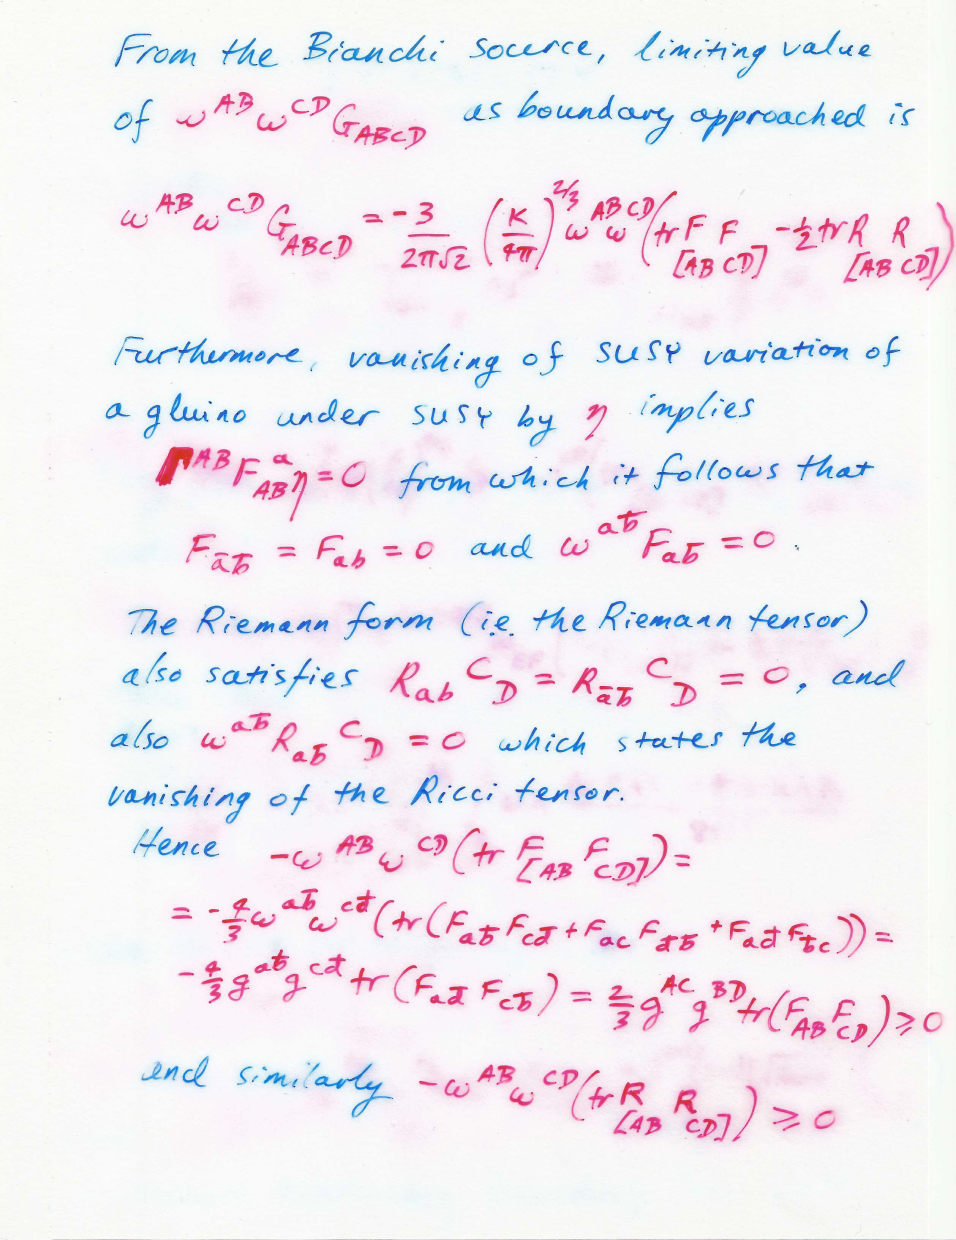 From the Bianchi source, limiting value
of ω^{AB} ω^{CD} G_{ABCD} as boundary approached is
ω^{AB} ω^{CD} G_{ABCD} = -3/(2π√2) (K/4π)^{2/3} ω^{AB} ω^{CD} (tr F_{[AB} F_{CD]} - ½ tr R_{[AB} R_{CD]})
Furthermore, vanishing of SUSY variation of
a gluino under SUSY by η implies
Γ^{AB} F^a_{AB} η = 0 from which it follows that
F_{āb̄} = F_{ab} = 0 and ω^{ab̄} F_{ab̄} = 0.
The Riemann form (i.e. the Riemann tensor)
also satisfies R_{ab}^C_D = R_{āb̄}^C_D = 0, and
also ω^{ab̄} R_{ab̄}^C_D = 0 which states the
vanishing of the Ricci tensor.
Hence -ω^{AB} ω^{CD} (tr F_{[AB} F_{CD]}) =
= -4/3 ω^{ab̄} ω^{cd̄} (tr (F_{ab̄} F_{cd̄} + F_{ac} F_{d̄b̄} + F_{ad̄} F_{b̄c})) =
-4/3 g^{ab̄} g^{cd̄} tr (F_{ad̄} F_{cb̄}) = 2/3 g^{AC} g^{BD} tr (F_{AB} F_{CD}) ⩾ 0
and similarly -ω^{AB} ω^{CD} (tr R_{[AB} R_{CD]}) ⩾ 0